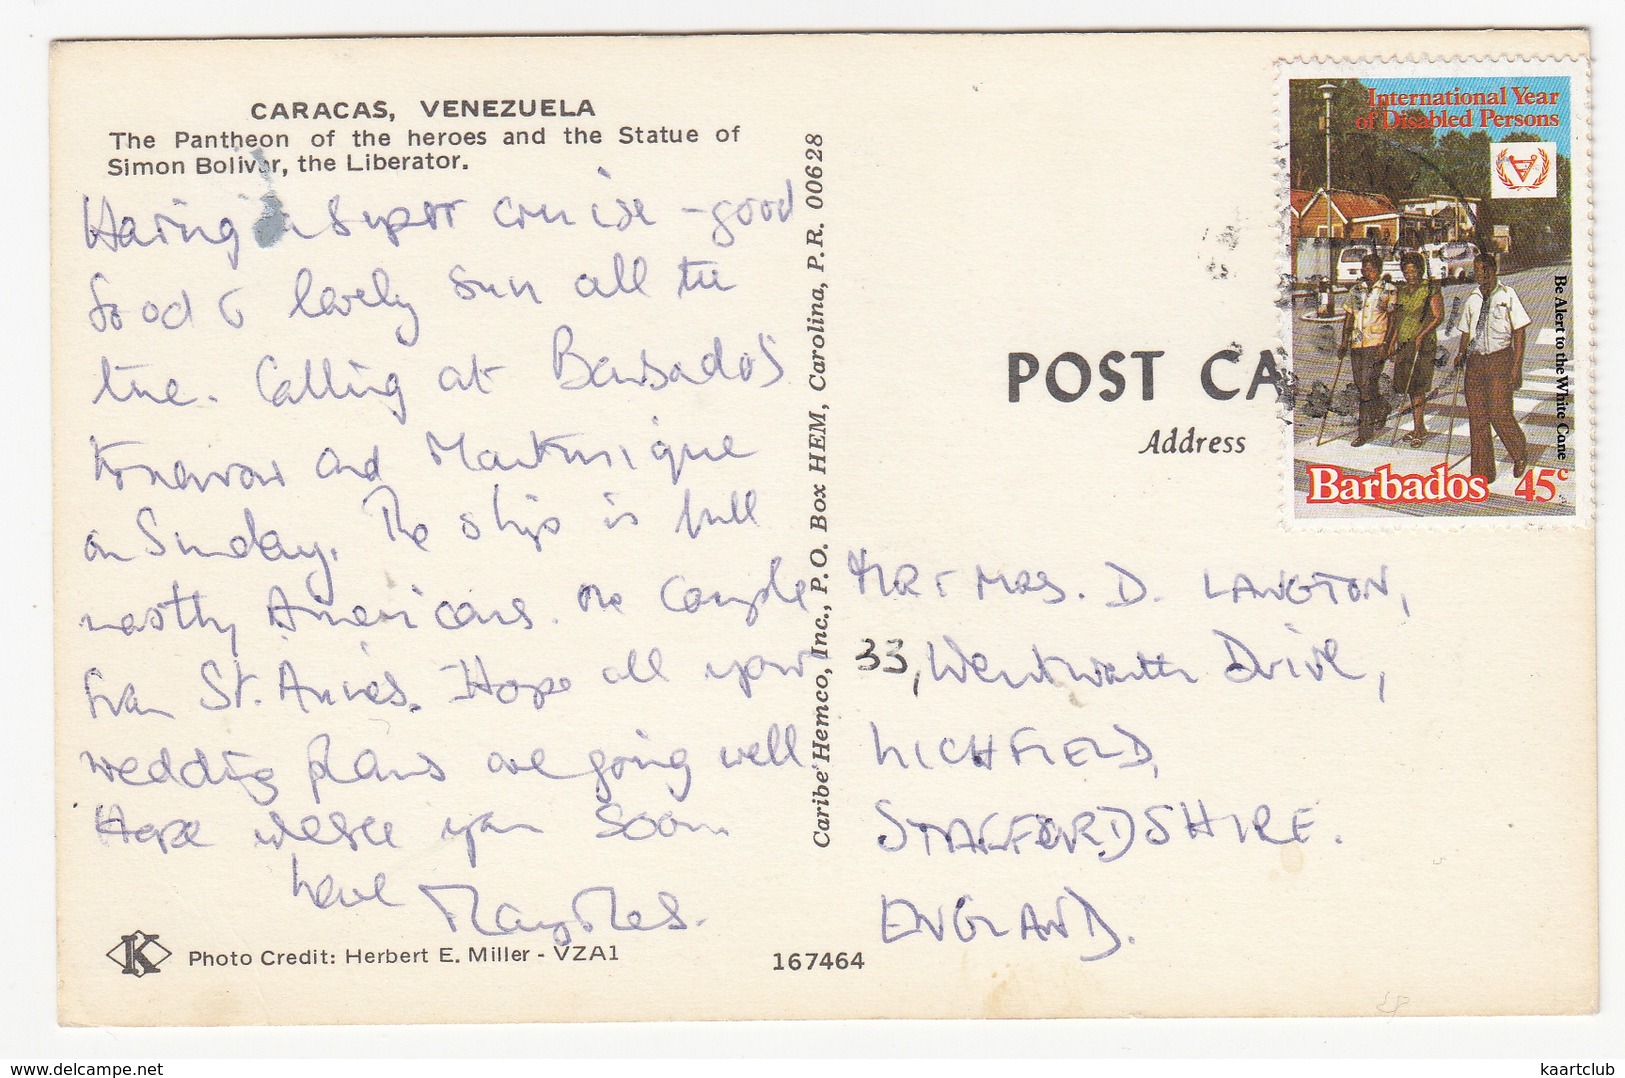 CARACAS, VENEZUELA
The Pantheon of the heroes and the Statue of
Simon Bolivar, the Liberator.
Having a super cruise - good
food & lovely sun all the
time. Calling at Barbados
tomorrow and Martinique
on Sunday. The ship is full
mostly Americans. One couple
from St. Annes. Hope all your
wedding plans are going well
Hope we see you soon
Love
Photo Credit: Herbert E. Miller - VZA1
167464
Caribe Hemco, Inc., P.O. Box HEM, Carolina, P.R. 00628
POST CA
Address
International Year
of Disabled Persons
Be Alert to the White Cane
Barbados 45c
MR & MRS. D. LANGTON,
33, Wentworth Drive,
LICHFIELD,
STAFFORDSHIRE.
ENGLAND.
www.delcampe.net
kaartclub